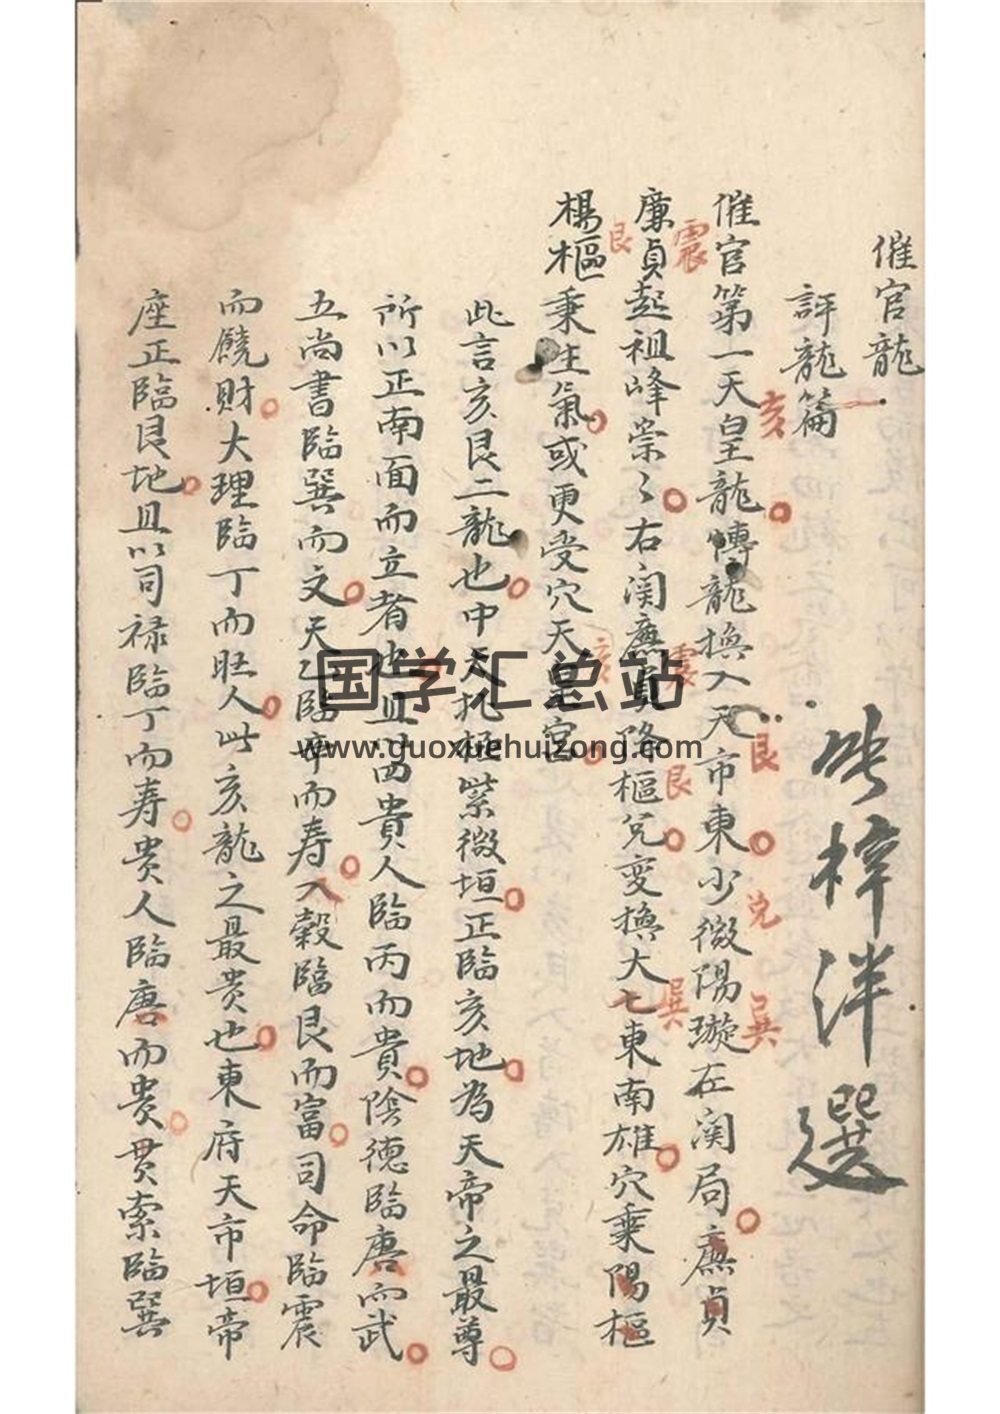 催官龍
評龍篇
張梓洋選
催官第一天皇龍博龍換入天市東少微陽璇在闺局廉貞
亥
艮
兌
巽
廉貞起祖峰崇〻右闺廉貞降樞兌变換大七東南雄穴乘陽樞
震
震
艮
巽
楊樞乘生氣或更受穴天皇宮
艮
亥
此言亥艮二龍也中天北極紫微垣正臨亥地為天帝之最尊
所以正南面而立者也且以四貴人臨丙而貴陰德臨庚而武
五尚書臨巽而文天乙臨辛而寿八穀臨艮而富司命臨震
而饒財大理臨丁而旺人此亥龍之最贵也東府天市垣帝
座正臨艮地且以司禄臨丁而寿贵人臨庚而贵贯索臨巽
国学汇总站
www.guoxuehuizong.com